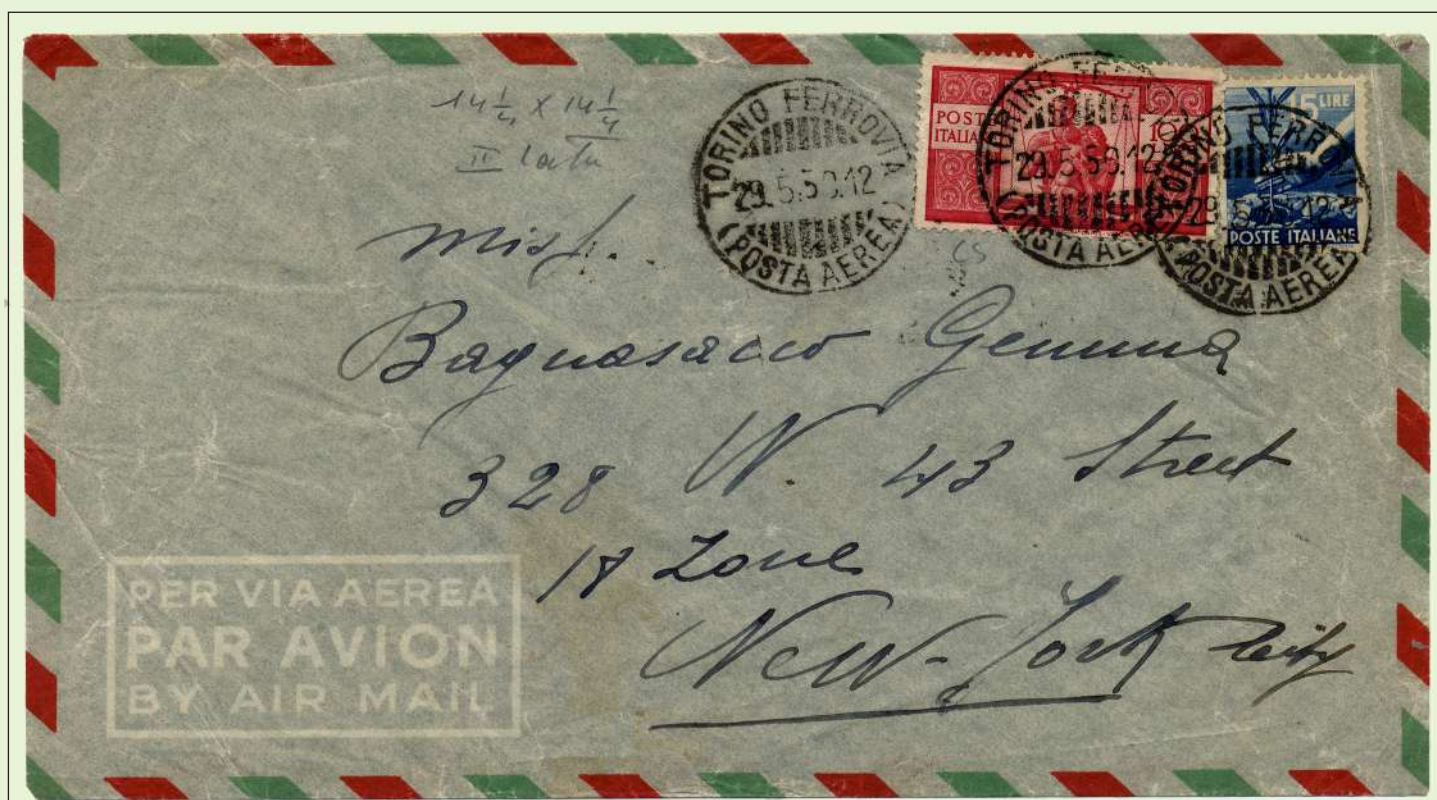 14 1/4 x 14 1/4
II
TORINO FERROVIA
29.5.50.12
(POSTA AEREA)
POSTE
ITALIANE
100
TORINO FERROVIA
29.5.50.12
(POSTA AEREA)
15 LIRE
POSTE ITALIANE
TORINO FERROVIA
29.5.50.12
(POSTA AEREA)
CS
Miss.
Bagnasacco Gemma
328 W. 43 Street
18 Zone
New-York City
PER VIA AEREA
PAR AVION
BY AIR MAIL